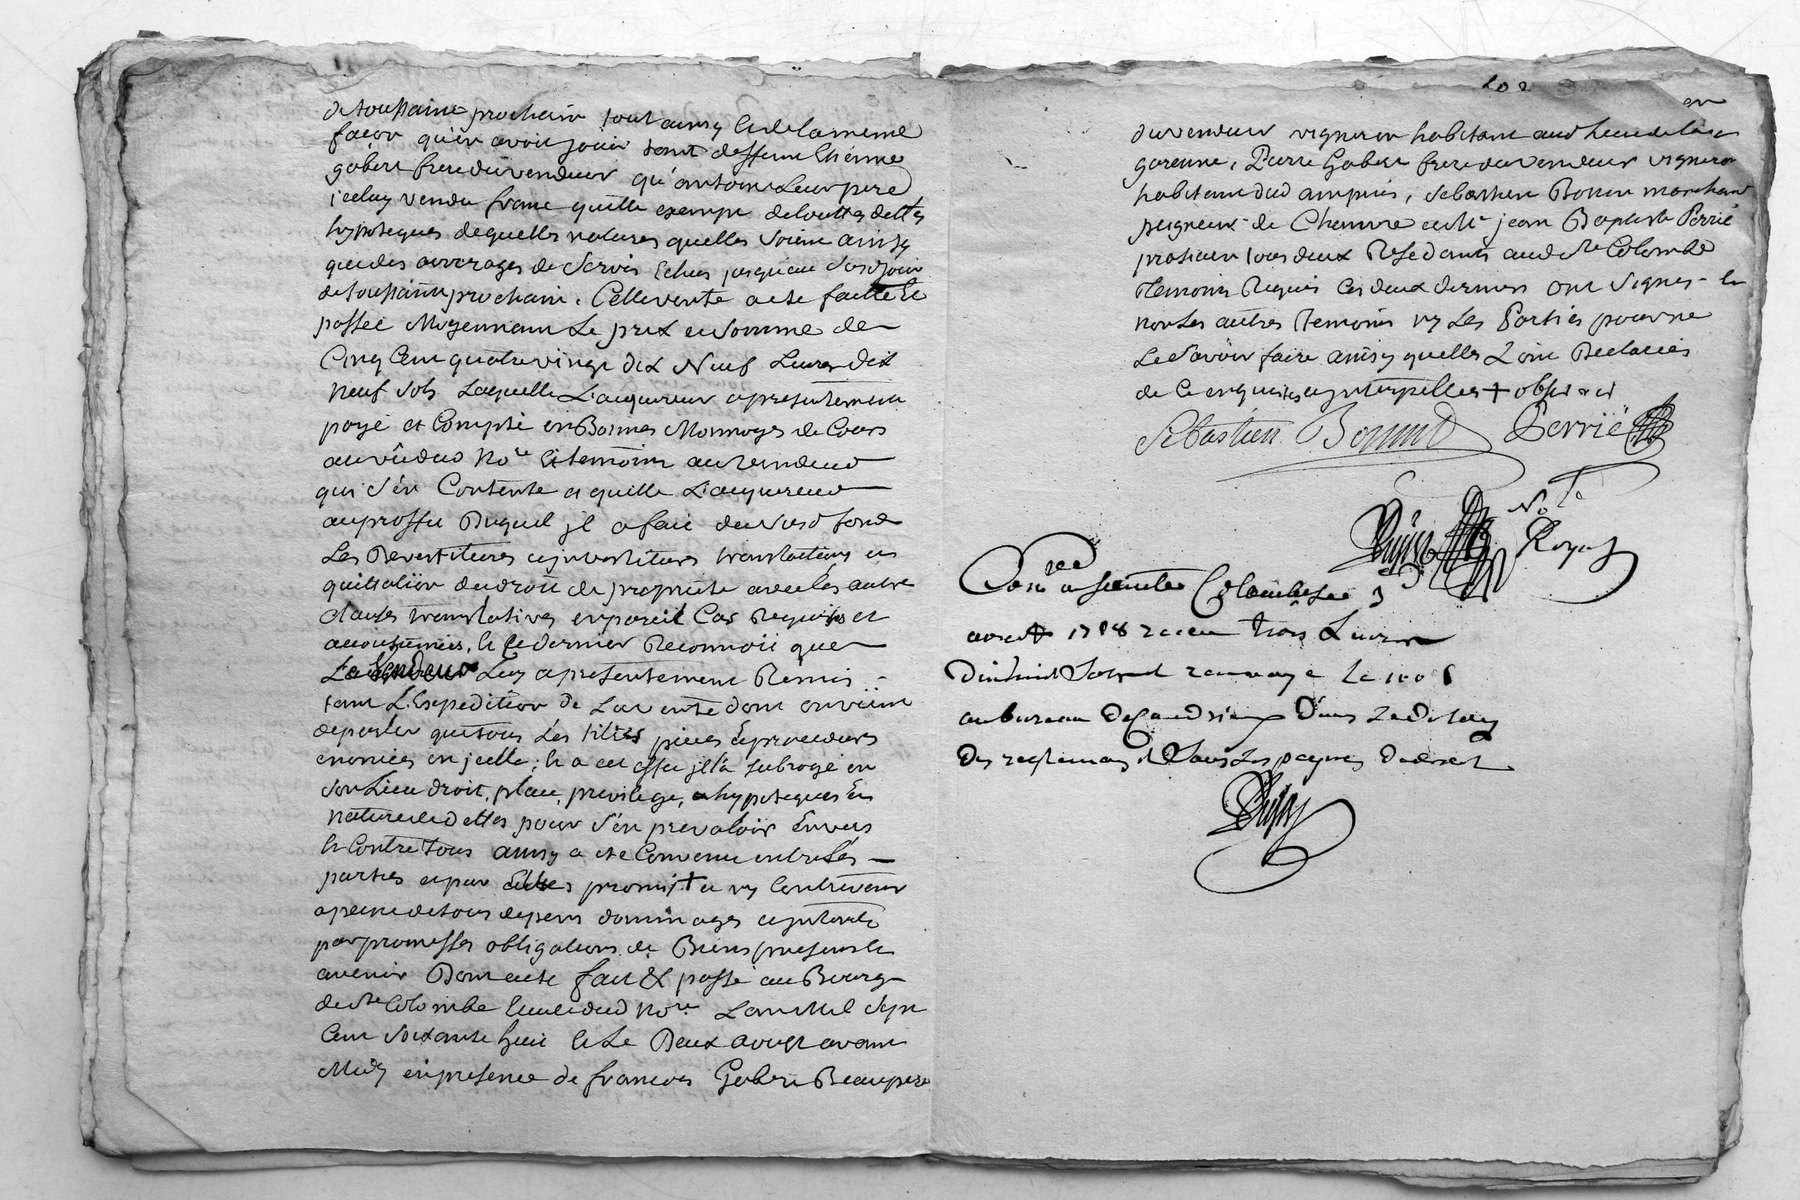 de toussaint prochain tout ainsy et de la meme
façon qu'en avoit jouir tant deffunt Etienne
gobert frere du vendeur qu'antoine Leur pere
icelay vendu franc quitte exempt de touttes dettes
hypoteques de quelles natures quelles soient ainsy
que des arrerages de servis Echus jusqu'au susd jour
de toussaint prochain. Cette vente a ete faitte et
passée Moyennant Le prix et somme de
Cinq Cent quatre vingt dix Neuf Livres dix
neuf sols Laquelle L'acquereur a presentement
payé et Compté en Bonnes Monnoyes de Cours
au vû dud Nore et temoins au vendeur
qui s'en Contente et quitte L'acquereur
au proffit Duquel il a fait du susd fond
Les Devestitures et investitures translations et
quittation du droit de proprieté avec les autres
clauses translatives en pareil Cas Requises et
accoutumées, et ce dernier Reconnoit que
Le vendeur Luy a presentement Remis
tant L'Expedition de La vente dont on vient
de parler que tous Les titres pieces Eprocedures
enoncées en jcelle; et a cet effet jl l'a subrogé en
son Lieu droit, place, privilege, et hypoteques En
nature de dettes pour s'en prevaloir Envers
et Contre tous ainsy a eté Convenu entre Les
parties et par Elles promis + et ny Contrevenir
a peine de tous depens dommages et jnterets
par promesses obligations de Biens presents et
avenir Dont acte fait & passé au Bourg
de Ste Colombe Etude dud Nore L'an Mil sept
Cent soixante huit et Le Deux aoust avant
Midy en presence de francois Gobert Beaupere
102
du vendeur vigneron habitant aud lieu de la
garenne, Pierre Gobert frere du vendeur vigneron
habitant dud ampuis, sebastien Bonin marchand
peigneur de Chanvre et Sr jean Baptiste Perrié
praticien tous deux Residants aud Ste Colombe
temoins Requis Ces deux derniers ont signés et
non Les autres temoins ny Les Parties pour ne
Le Savoir faire ainsy quelles L'ont Declarées
de Ce enquises et jnterpellées + observer
Sebastien Bonin Perrié
Nore
Royal
Conlée a sainte Colombe Le 3
aoust 1768 recu trois Livres
dix huit sols et renvoyé Le 100e
au bureau de Condrieu dans Le delay
des reglemens et sous Les peynes de droit